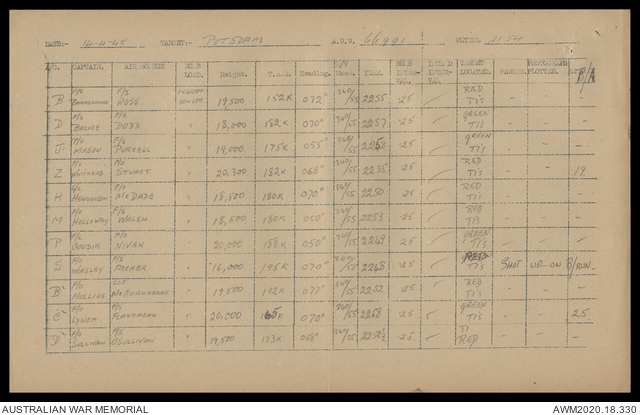 DATE:- 14-4-45 TARGET:- POTSDAM A.U.W. 61991 V.T.O.L. 2154
A/C. CAPTAIN. AIR BOMBER BOMB LOAD. Height. T.A.S. Heading. W/V Used. TIME. BOMB INTERVAL TARGET LOCATED. PHOTOGRAPH PLOTTED.
B F/O F/S ROSS 19,500 152K 072° 340/55 2255 ·25 RED TI's
D BALMER DODD " 18,000 182K 070° 340/55 2257 ·25 GREEN TI's
J MASON PURCELL " 19,000 175K 055° 340/55 2258 ·25 GREEN TI's
Z STUART " 20,300 182K 068° 340/55 2255 ·25 RED TI's 19
H HENDERSON McDADE " 18,500 180K 070° 340/55 2250 ·25 RED TI's
M HOLLOWAY WALSH " 18,500 180K 050° 340/55 2253 ·25 RED TI's
P NIVEN " 20,000 188K 050° 340/55 2249 ·25 GREEN TI's
S WORSLEY " 16,000 195K 070° 340/55 2248 ·25 RED TI's SHOT UP ON B/RUN.
B MULLINS " 19,500 192K 077° 340/55 2252 ·25 RED TI's
C LYNCH FLANNAGAN " 20,000 165K 070° 340/55 2258 ·25 GREEN TI's 25
D SULLIVAN O'SULLIVAN " 19,500 173K 068° 340/55 2252½ ·25 TI RED
AUSTRALIAN WAR MEMORIAL AWM2020.18.330